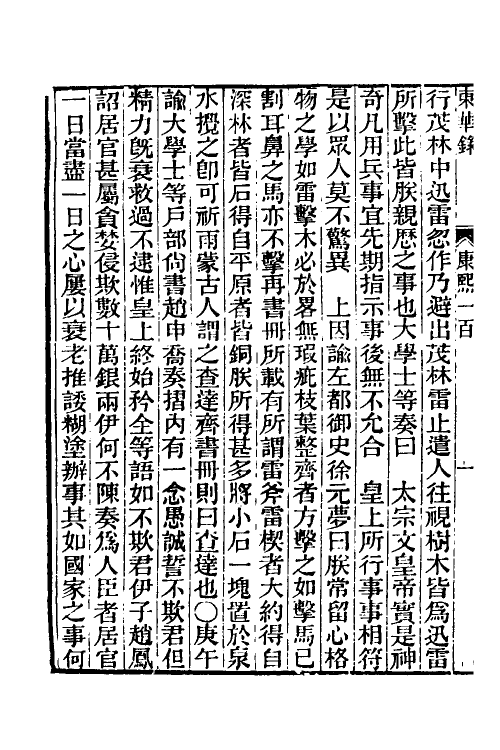 東華錄 康熙一百 一
行茂林中迅雷忽作乃避出茂林雷止遣人往視樹木皆爲迅雷
所擊此皆朕親歷之事也大學士等奏曰 太宗文皇帝實是神
奇凡用兵事宜先期指示事後無不允合 皇上所行事事相符
是以眾人莫不驚異 上因諭左都御史徐元夢曰朕常留心格
物之學如雷擊木必於畧無瑕疵枝葉整齊者方擊之如擊馬已
割耳鼻之馬亦不擊再書冊所載有所謂雷斧雷楔者大約得自
深林者皆石得自平原者皆銅朕所得甚多將小石一塊置於泉
水攪之卽可祈雨蒙古人謂之查達齊書冊則曰查達也〇庚午
諭大學士等戶部尙書趙申喬奏摺內有一念愚誠誓不欺君但
精力旣衰救過不逮惟皇上終始矜全等語如不欺君伊子趙鳳
詔居官甚屬貪婪侵欺數十萬銀兩伊何不陳奏爲人臣者居官
一日當盡一日之心屢以衰老推諉糊塗辦事其如國家之事何